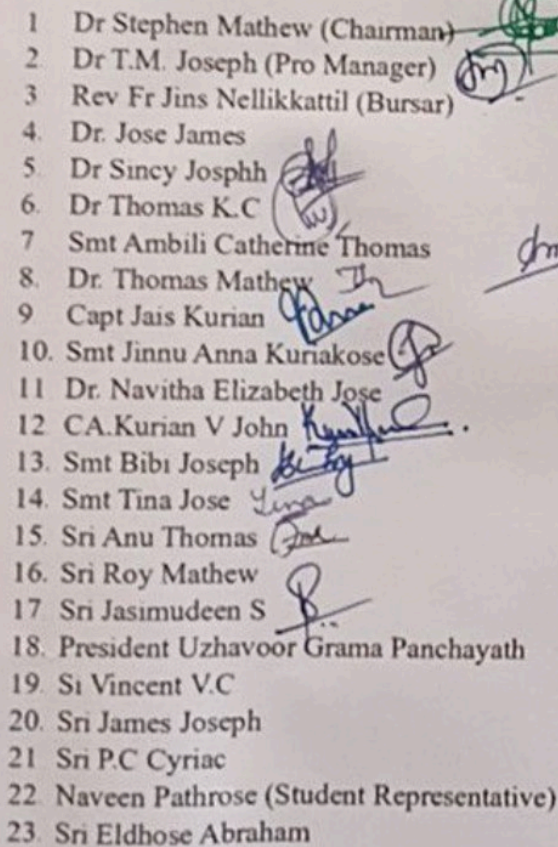 1 Dr Stephen Mathew (Chairman)
2 Dr T.M. Joseph (Pro Manager)
3 Rev Fr Jins Nellikkattil (Bursar)
4. Dr. Jose James
5. Dr Sincy Josphh
6. Dr Thomas K.C
7 Smt Ambili Catherine Thomas
8. Dr. Thomas Mathew
9 Capt Jais Kurian
10. Smt Jinnu Anna Kuriakose
11 Dr. Navitha Elizabeth Jose
12 CA.Kurian V John
13. Smt Bibi Joseph
14. Smt Tina Jose Tina
15. Sri Anu Thomas
16. Sri Roy Mathew
17 Sri Jasimudeen S
18. President Uzhavoor Grama Panchayath
19. Si Vincent V.C
20. Sri James Joseph
21 Sri P.C Cyriac
22. Naveen Pathrose (Student Representative)
23. Sri Eldhose Abraham